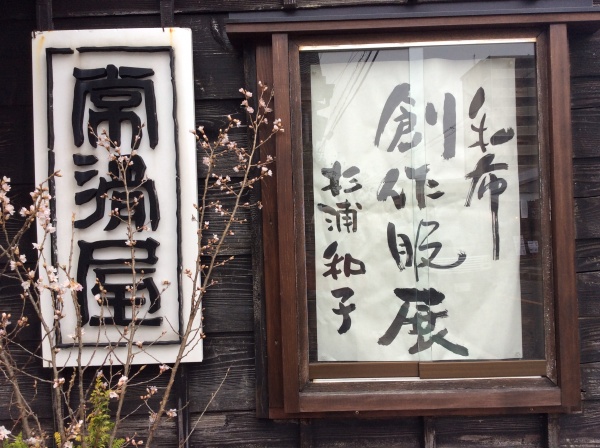 常満屋
和布
創作服展
杉浦和子